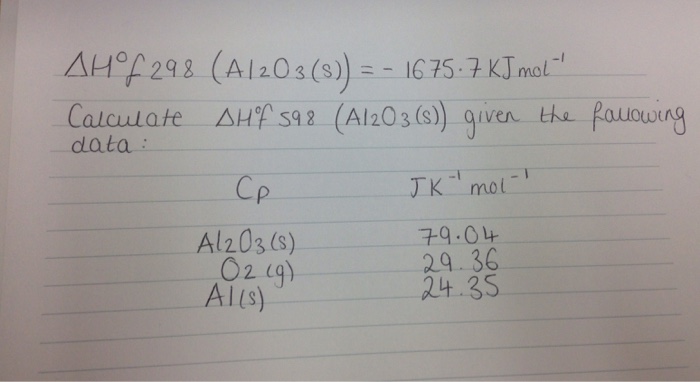 ΔH°f 298 (Al2O3(s)) = - 1675.7 KJ mol⁻¹
Calculate ΔH°f 598 (Al2O3(s)) given the following
data:
Cp JK⁻¹ mol⁻¹
Al2O3(s) 79.04
O2(g) 29.36
Al(s) 24.35